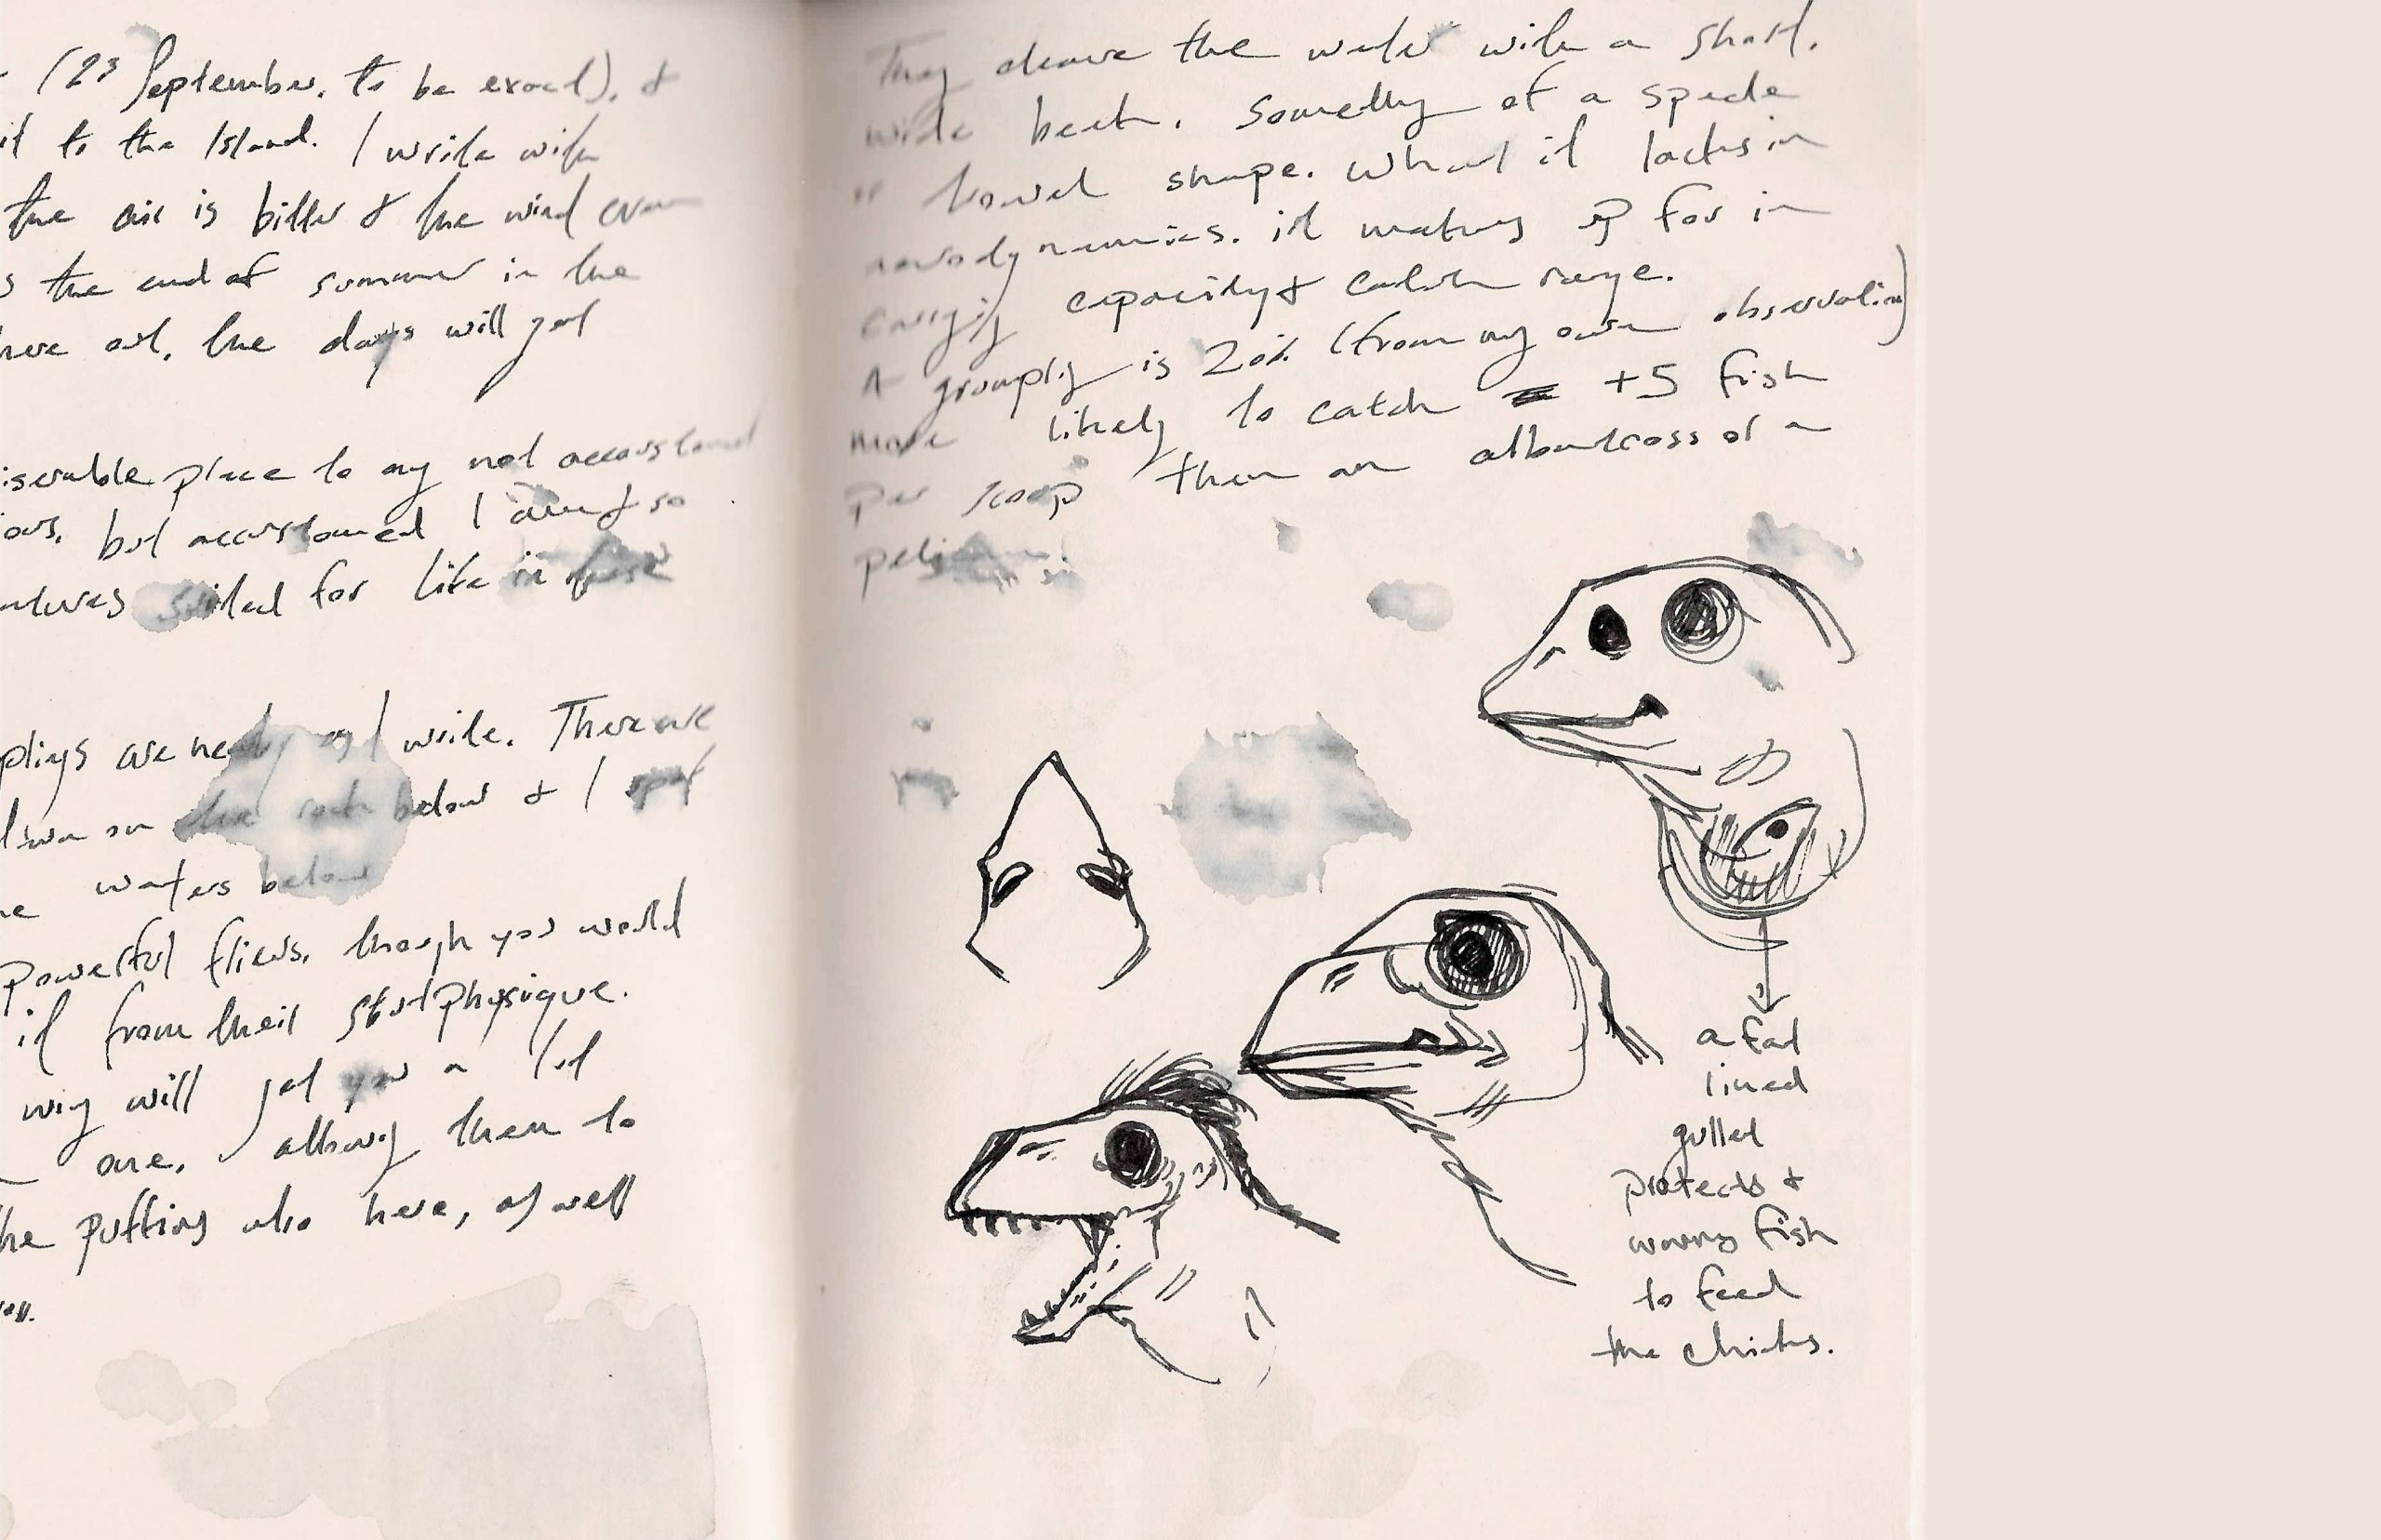 (23 September, to be exact), &
it to the Island. I write with
the air is bitter & the wind even
s the end of summer in the
here out, the days will get
iserable place to any not accustomed
ous, but accustomed I am & so
atures suited for life in these
plings are nearby as I write. There are
on the rock below & I spot
waters below
powerful fliers, though you would
it from their stout physique.
wing will get you a lot
one, allowing them to
he puffins who here, as well
They cleave the water with a short,
wide beak. Something of a spade
or trowel shape. What it lacks in
aerodynamics, it makes up for in
carrying capacity & catch range.
A grompling is 20% (from my own observation)
more likely to catch +5 fish
per scoop than an albatross or a
pelican
a fat
lined
gullet
protects &
warms fish
to feed
the chicks.